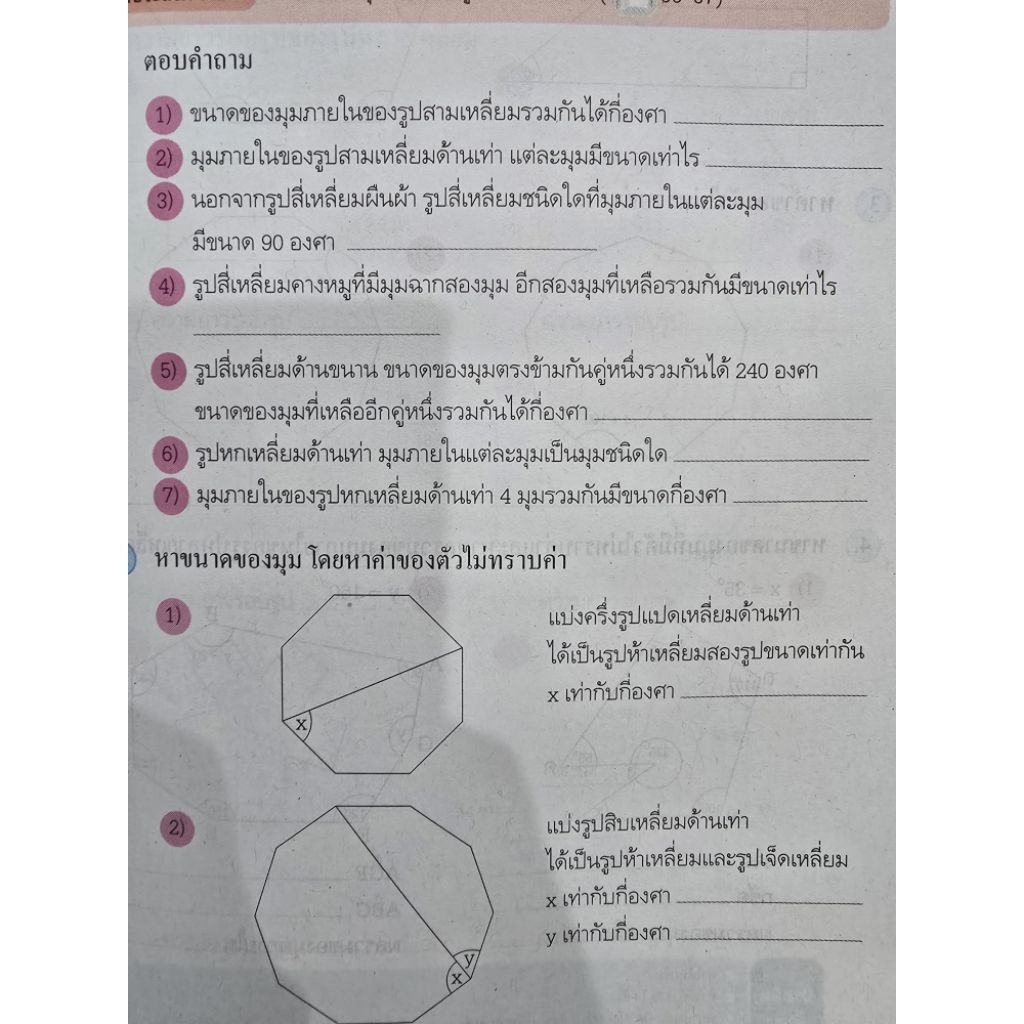 ตอบคำถาม
1) ขนาดของมุมภายในของรูปสามเหลี่ยมรวมกันได้กี่องศา
2) มุมภายในของรูปสามเหลี่ยมด้านเท่า แต่ละมุมมีขนาดเท่าไร
3) นอกจากรูปสี่เหลี่ยมผืนผ้า รูปสี่เหลี่ยมชนิดใดที่มุมภายในแต่ละมุม
มีขนาด 90 องศา
4) รูปสี่เหลี่ยมคางหมูที่มีมุมฉากสองมุม อีกสองมุมที่เหลือรวมกันมีขนาดเท่าไร
5) รูปสี่เหลี่ยมด้านขนาน ขนาดของมุมตรงข้ามกันคู่หนึ่งรวมกันได้ 240 องศา
ขนาดของมุมที่เหลืออีกคู่หนึ่งรวมกันได้กี่องศา
6) รูปหกเหลี่ยมด้านเท่า มุมภายในแต่ละมุมเป็นมุมชนิดใด
7) มุมภายในของรูปหกเหลี่ยมด้านเท่า 4 มุมรวมกันมีขนาดกี่องศา
หาขนาดของมุม โดยหาค่าของตัวไม่ทราบค่า
1)
แบ่งครึ่งรูปแปดเหลี่ยมด้านเท่า
ได้เป็นรูปห้าเหลี่ยมสองรูปขนาดเท่ากัน
x เท่ากับกี่องศา
x
2)
แบ่งรูปสิบเหลี่ยมด้านเท่า
ได้เป็นรูปห้าเหลี่ยมและรูปเจ็ดเหลี่ยม
x เท่ากับกี่องศา
y เท่ากับกี่องศา
y
x